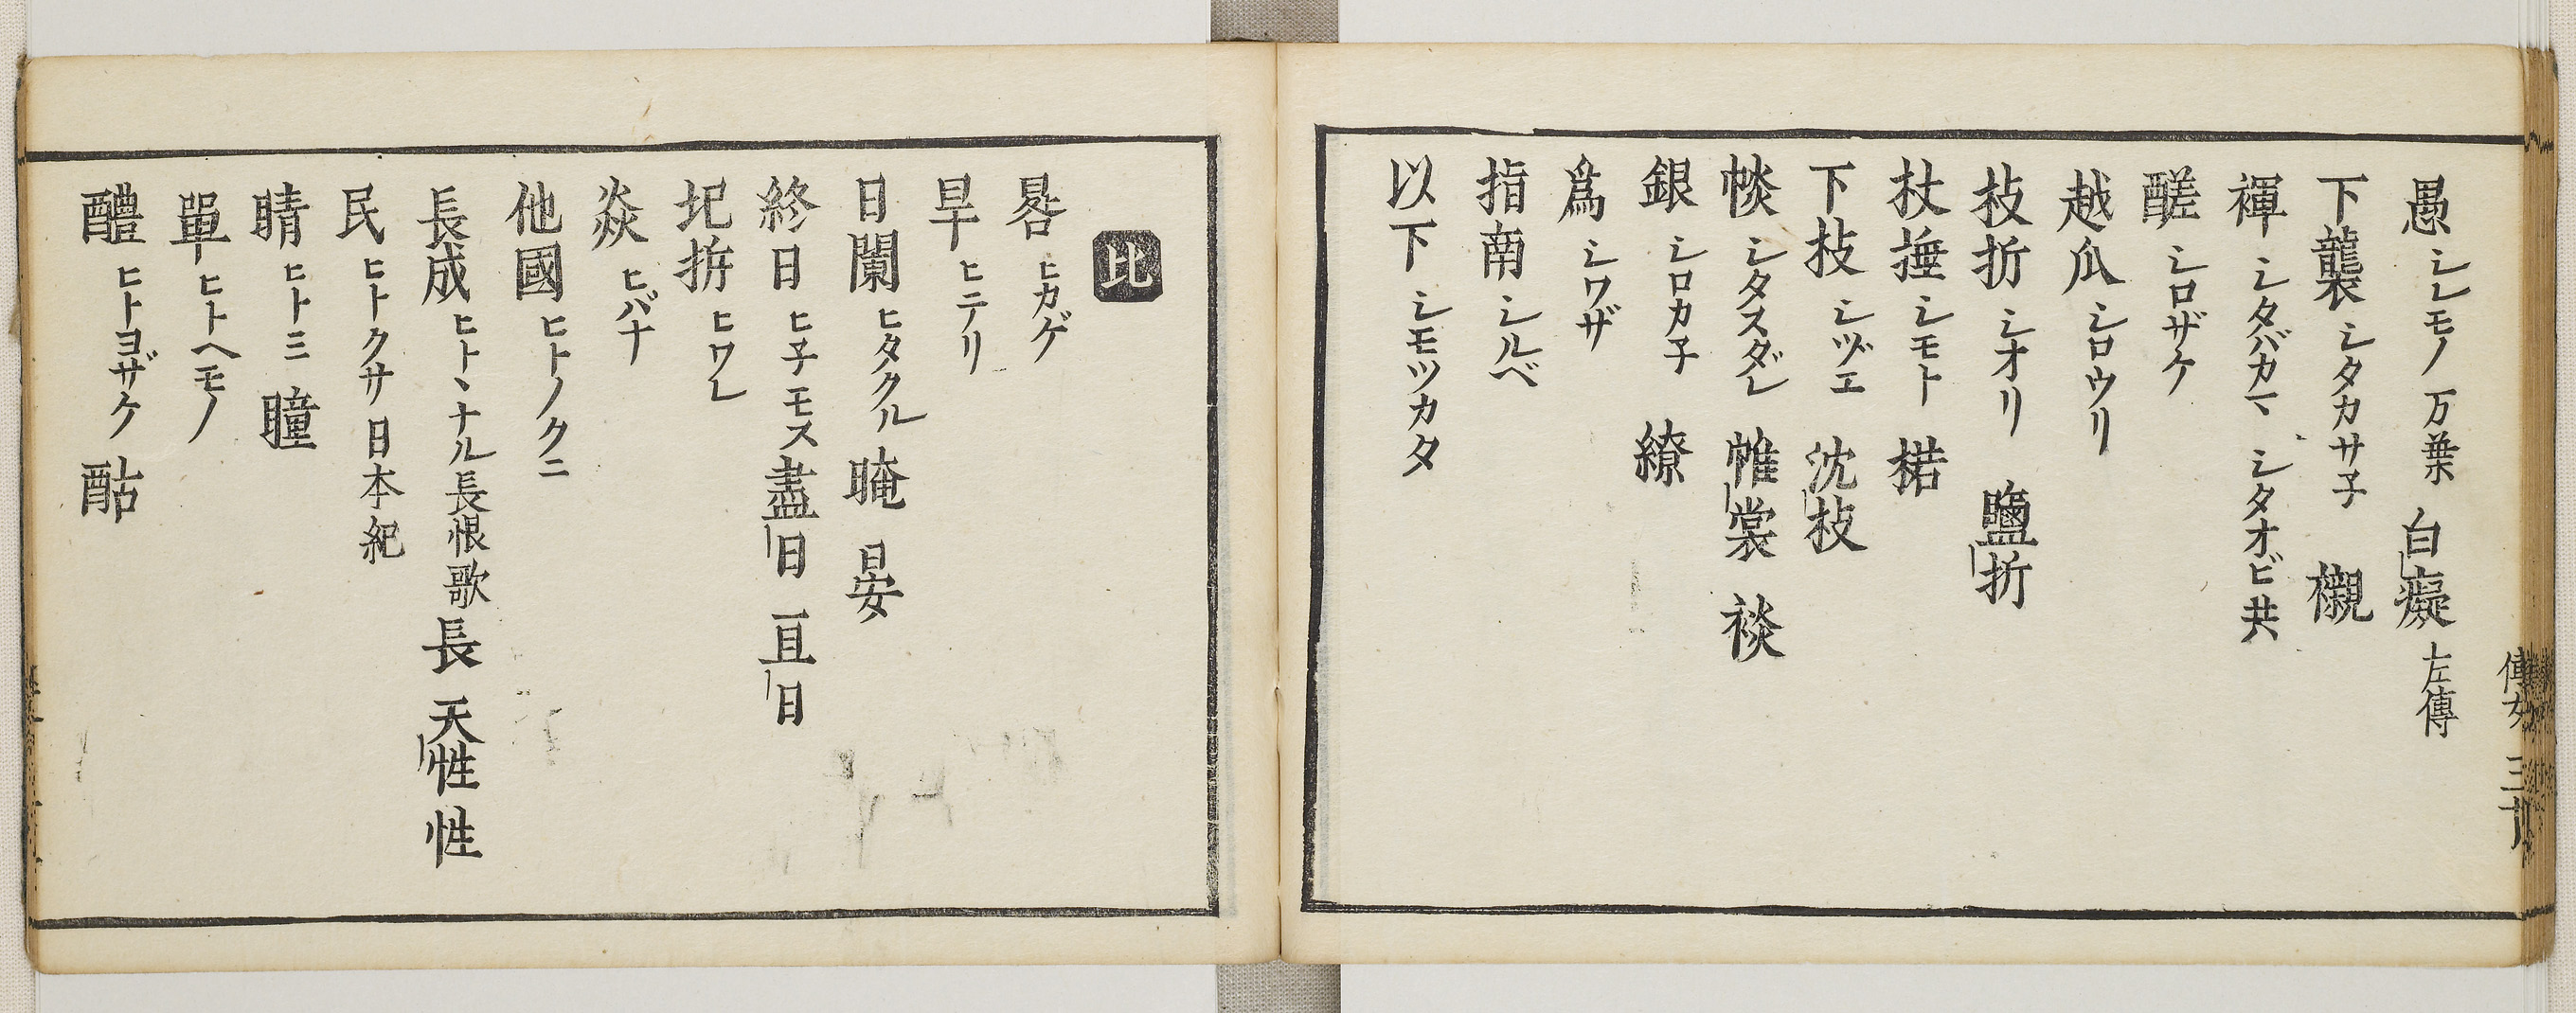 愚 シレモノ 万葉 白癡 左傳
下襲 シタカサ子 襯
褌 シタバカマ シタオビ共
醝 シロザケ
越瓜 シロウリ
枝折 シオリ 鹽折
杖捶 シモト 楉
下枝 シヅエ 沈枝
惔 シタスダレ 帷裳 裧
銀 シロカ子 鐐
爲 シワザ
指南 シルベ
以下 シモツカタ
比
晷 ヒカゲ
旱 ヒテリ
日闌 ヒタクル 晻 晏
終日 ヒ子モス 盡日 亘日
圮拆 ヒワレ
焱 ヒバナ
他國 ヒトノクニ
長成 ヒトヽナル 長恨歌 長 天性 性
民 ヒトクサ 日本紀
睛 ヒトミ 瞳
單 ヒトヘモノ
醴 ヒトヨザケ 酤